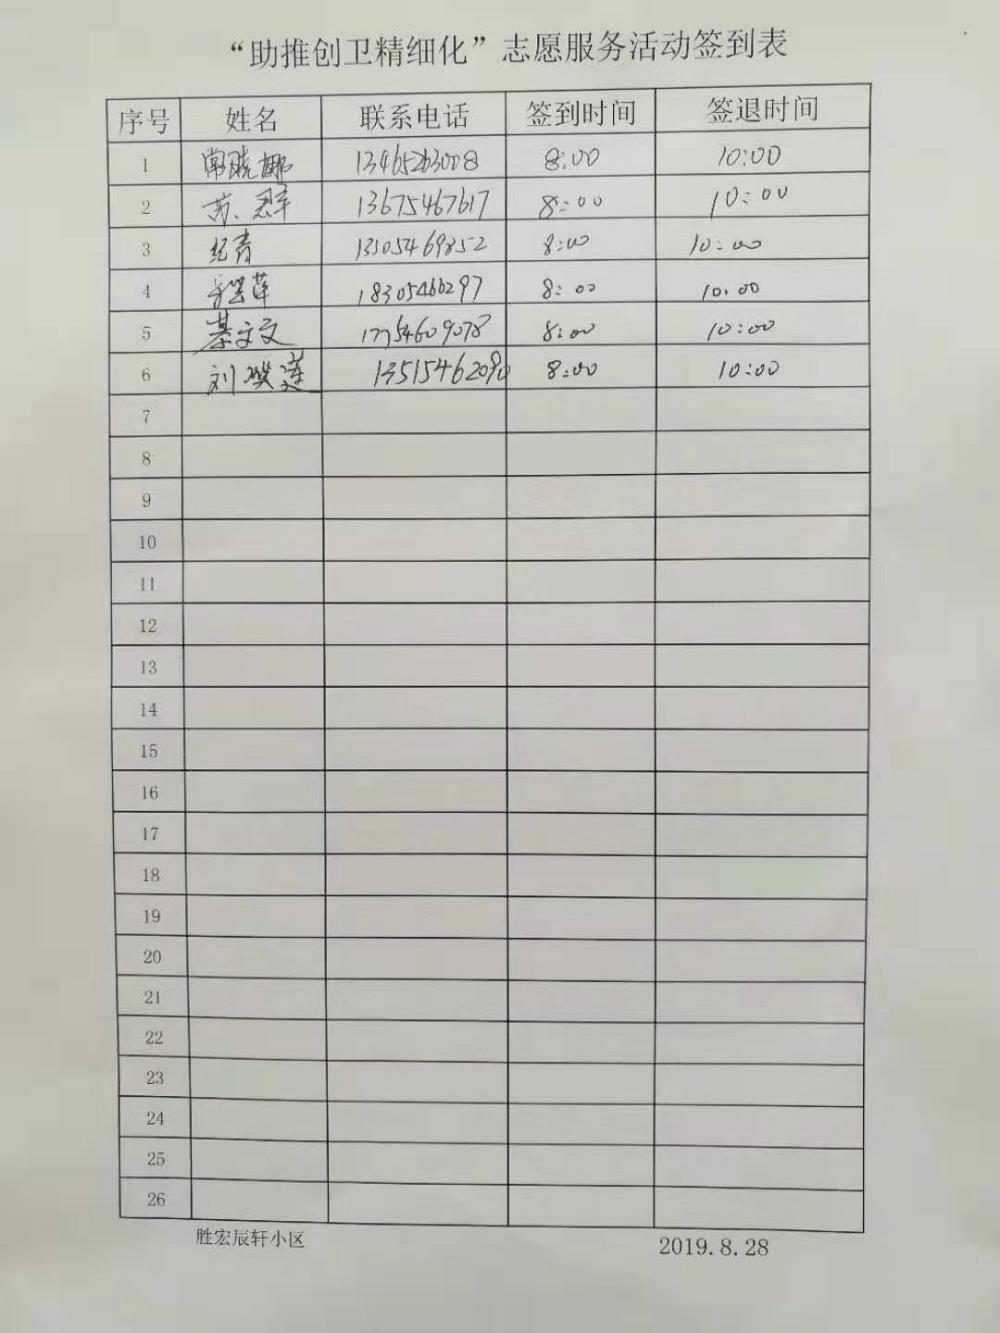 “助推创卫精细化”志愿服务活动签到表
序号 姓名 联系电话 签到时间 签退时间
1 常晓娜 13465263008 8:00 10:00
2 苏 13675467617 8:00 10:00
3 纪青 13305469852 8:00 10:00
4 18305466297 8:00 10:00
5 綦文文 17754609078 8:00 10:00
6 刘 13515462090 8:00 10:00
7
8
9
10
11
12
13
14
15
16
17
18
19
20
21
22
23
24
25
26
胜宏辰轩小区 2019.8.28